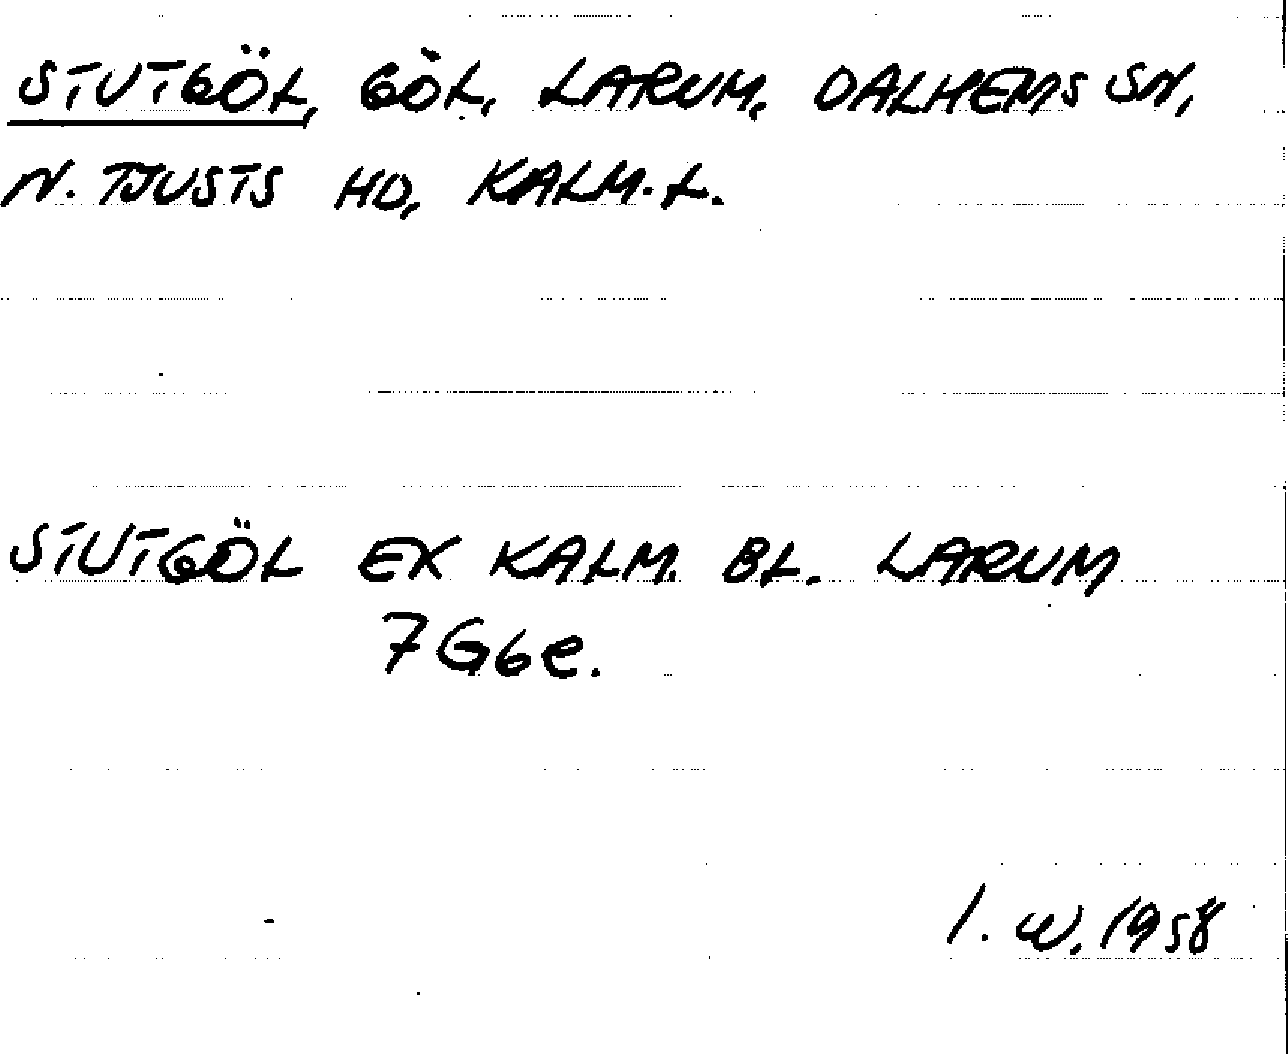 STUTGÖL, GÖL, LARUM, DALHEMS SN,
N. TJUSTS HD, KALM.L.
STUTGÖL EX KALM. BL. LARUM
7G6e.
I. W. 1958